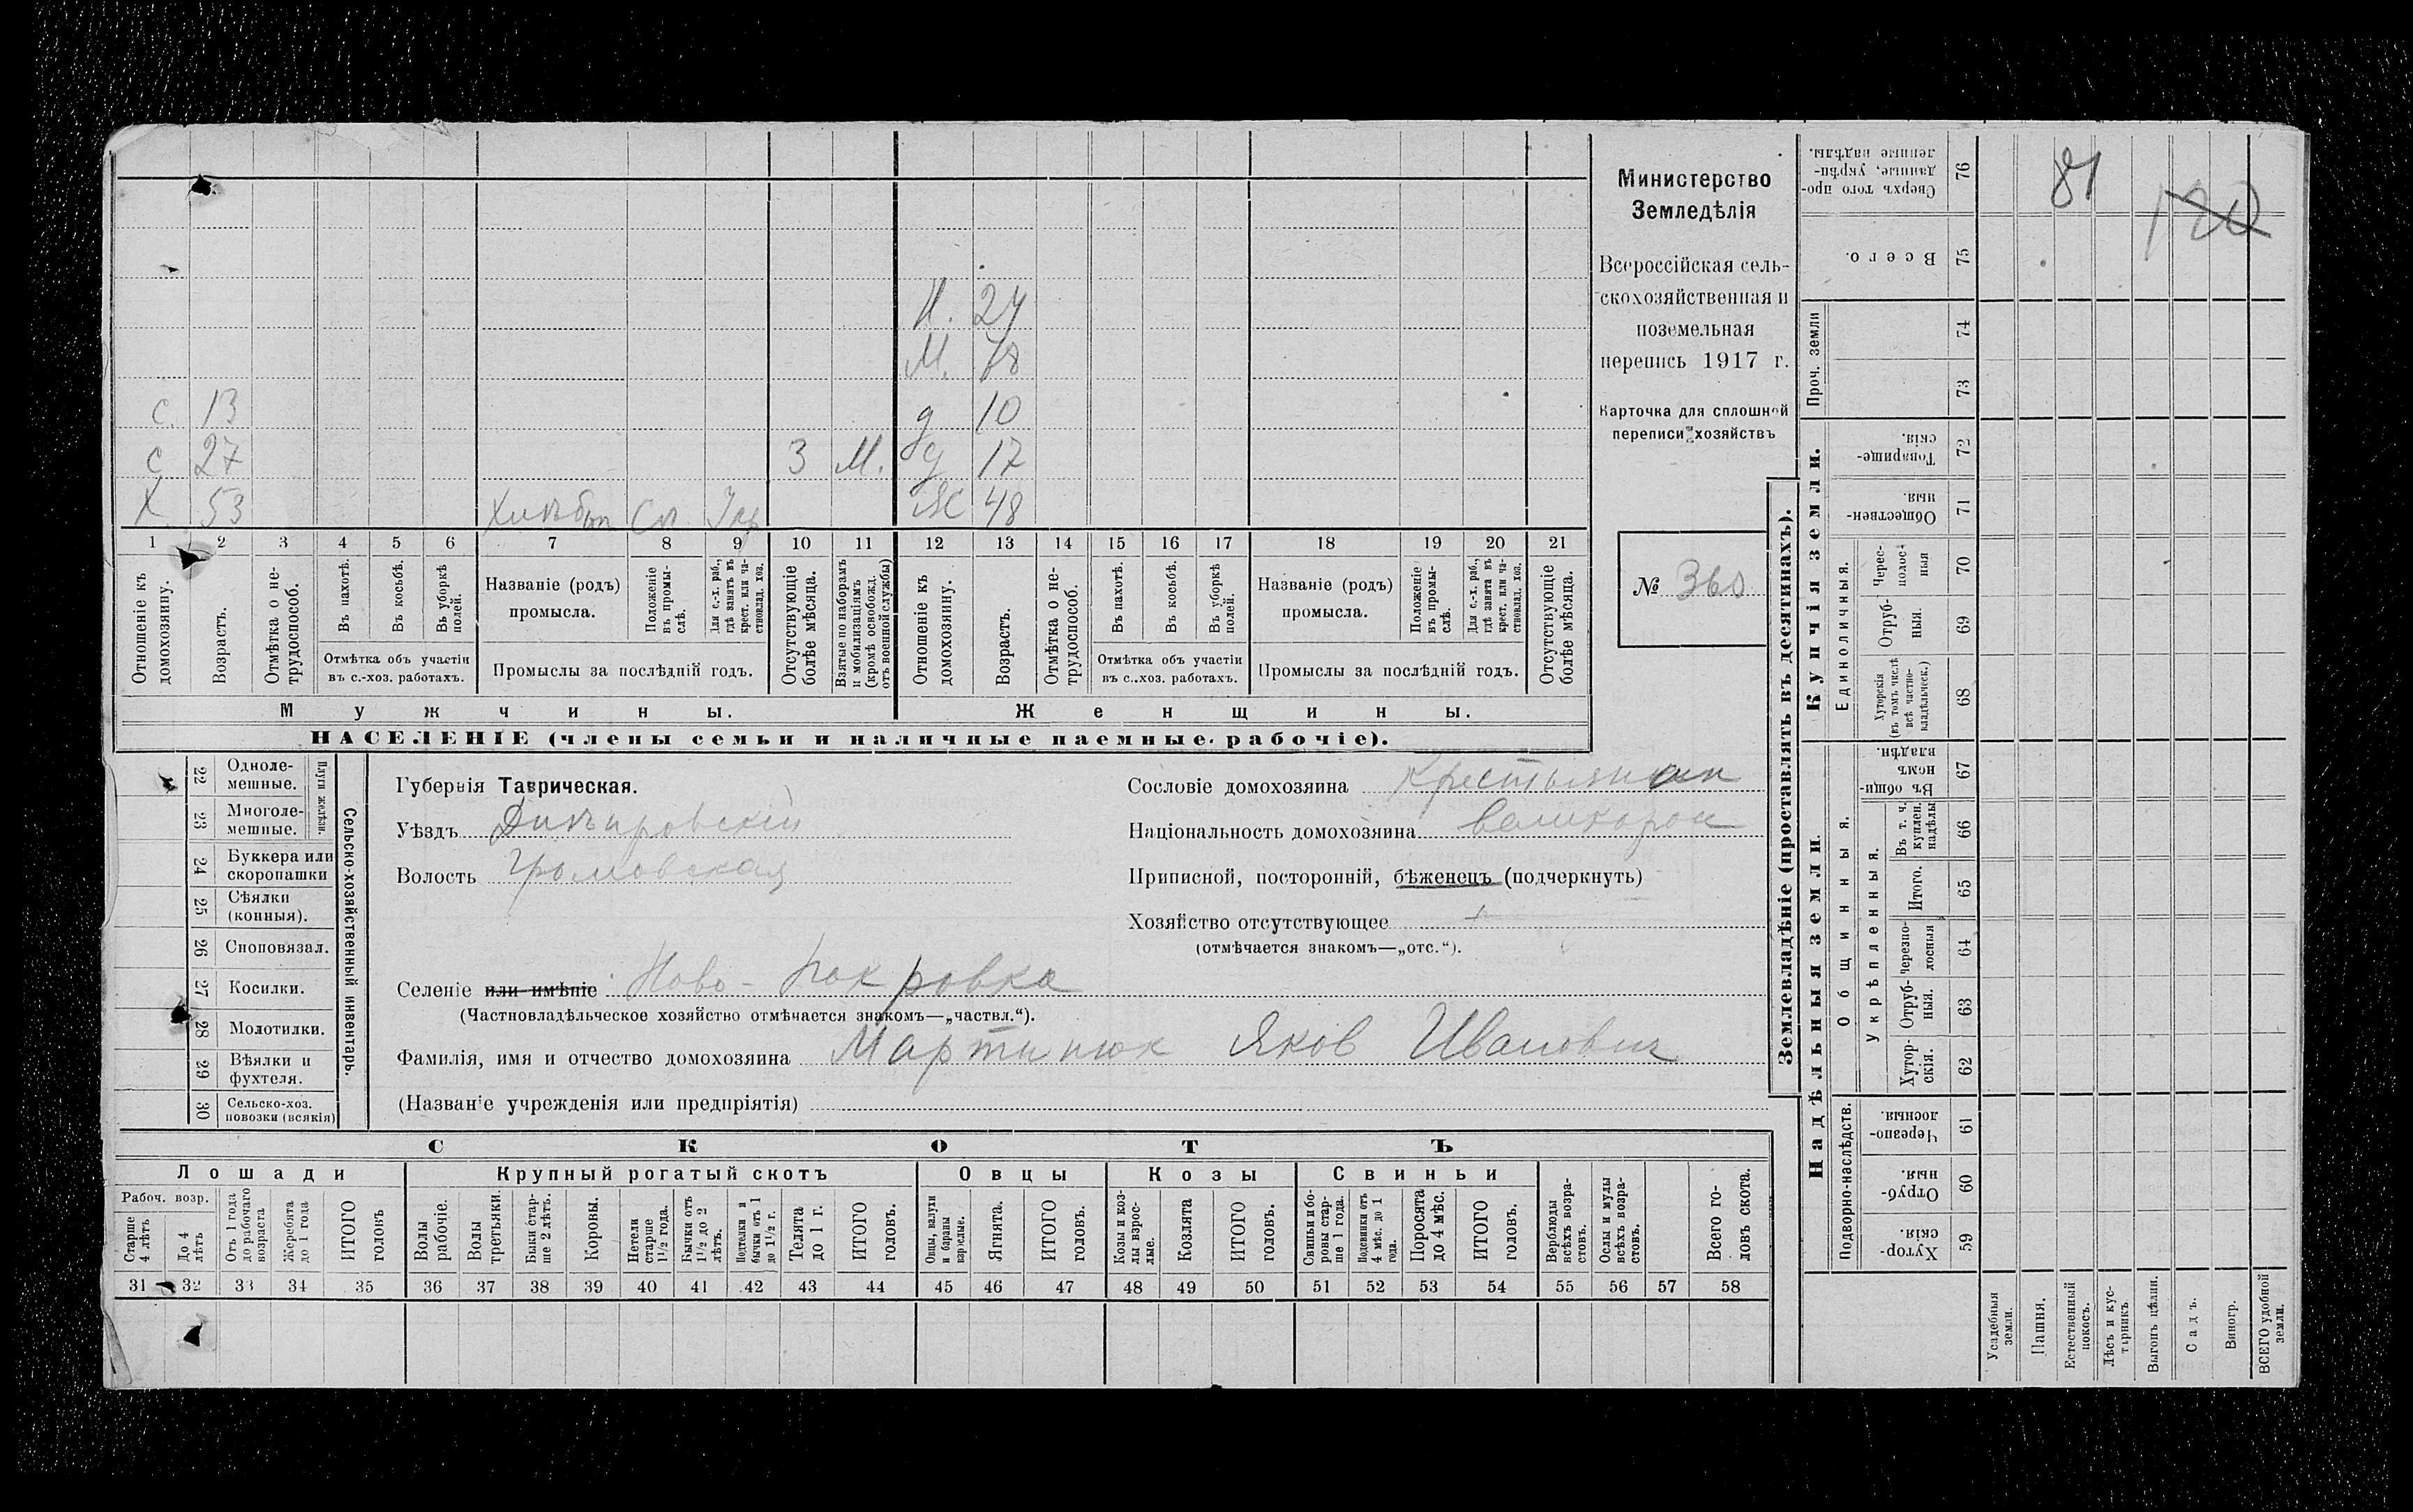 Министерство
Земледѣлія
Всероссійская сель-
скохозяйственная и
поземельная
перепись 1917 г.
Карточка для сплошной
переписи хозяйствъ
№ 360
81
120
И. 24
М. 78
с. 13 д 10
с 27 3 М. д 17
Х 53 Хлѣбп Сп. Ж 48
1 2 3 4 5 6 7 8 9 10 11 12 13 14 15 16 17 18 19 20 21
Отношеніе къ домохозяину.
Возрастъ.
Отмѣтка о не-трудоспособ.
Въ пахотѣ.
Въ косьбѣ.
Въ уборкѣ полей.
Отмѣтка объ участіи въ с.-хоз. работахъ.
Названіе (родъ) промысла.
Положеніе въ промы-слѣ.
Для с.-х. раб., гдѣ занятъ въ крест. или ча-стновлад. хоз.
Промыслы за послѣдній годъ.
Отсутствующіе болѣе мѣсяца.
Взятые по наборамъ и мобилизаціямъ (кромѣ освобожд. отъ военной службы)
Отношеніе къ домохозяину.
Возрастъ.
Отмѣтка о не-трудоспособ.
Въ пахотѣ.
Въ косьбѣ.
Въ уборкѣ полей.
Отмѣтка объ участіи въ с.-хоз. работахъ.
Названіе (родъ) промысла.
Положеніе въ промы-слѣ.
Для с.-х. раб., гдѣ занята въ крест. или ча-стновлад. хоз.
Промыслы за послѣдній годъ.
Отсутствующіе болѣе мѣсяца.
Мужчины. Женщины.
НАСЕЛЕНІЕ (члены семьи и наличные наемные рабочіе).
22 Одноле-мешные.
23 Многоле-мешные.
Плуги желѣзн.
24 Буккера или скоропашки
25 Сѣялки (конныя).
26 Сноповязал.
27 Косилки.
28 Молотилки.
29 Вѣялки и фухтеля.
30 Сельско-хоз. повозки (всякія)
Сельско-хозяйственный инвентарь.
Губернія Таврическая.
Уѣздъ Днѣпровскій
Волость Громовская
Селеніе или имѣніе Ново-Покровка
(Частновладѣльческое хозяйство отмѣчается знакомъ—„частвл.“).
Фамилія, имя и отчество домохозяина Мартинюк Яков Иванович
(Названіе учрежденія или предпріятія)
Сословіе домохозяина Крестьянин
Національность домохозяина великорос
Приписной, посторонній, бѣженецъ (подчеркнуть)
Хозяйство отсутствующее
(отмѣчается знакомъ—„отс.“).
СКОТЪ
Лошади Крупный рогатый скотъ Овцы Козы Свиньи
Рабоч. возр.
Старше 4 лѣтъ
До 4 лѣтъ
Отъ 1 года до рабочаго возраста
Жеребята до 1 года
ИТОГО головъ
Волы рабочіе.
Волы третьяки.
Быки стар-ше 2 лѣтъ.
Коровы.
Нетели старше 1½ года.
Бычки отъ 1½ до 2 лѣтъ.
Подтелки и бычки отъ 1 до 1½ г.
Телята до 1 г.
ИТОГО головъ.
Овцы, валухи и бараны взрослые.
Ягнята.
ИТОГО головъ.
Козы и коз-лы взрос-лые.
Козлята
ИТОГО головъ.
Свиньи и бо-ровы стар-ше 1 года.
Подсвинки отъ 4 мѣс. до 1 года.
Поросята до 4 мѣс.
ИТОГО головъ.
Верблюды всѣхъ возра-стовъ.
Ослы и мулы всѣхъ возра-стовъ.
Всего го-ловъ скота.
31 32 33 34 35 36 37 38 39 40 41 42 43 44 45 46 47 48 49 50 51 52 53 54 55 56 57 58
Землевладѣніе (проставлять въ десятинахъ).
Сверхъ того про-данные, укрѣп-ленные надѣлы. 76
Всего. 75
Проч. земли 74 73
Купчія земли.
Товарище-скія. 72
Обществен-ныя. 71
Единоличныя.
Черес-полос-ныя 70
Отруб-ныя. 69
Хуторскія (въ томъ числѣ всѣ частно-владѣльческ.) 68
Надѣльныя земли.
Общинныя.
Въ общин-номъ владѣн. 67
Укрѣпленныя.
Въ т. ч. куплен. надѣлы 66
Итого. 65
Черезпо-лосныя 64
Отруб-ныя. 63
Хутор-скія. 62
Подворно-наслѣдств.
Черезпо-лосныя. 61
Отруб-ныя. 60
Хутор-скія. 59
Усадебныя земли.
Пашня.
Естественный покосъ.
Лѣсъ и кус-тарникъ
Выгонъ цѣлин.
Садъ.
Виногр.
ВСЕГО удобной земли.